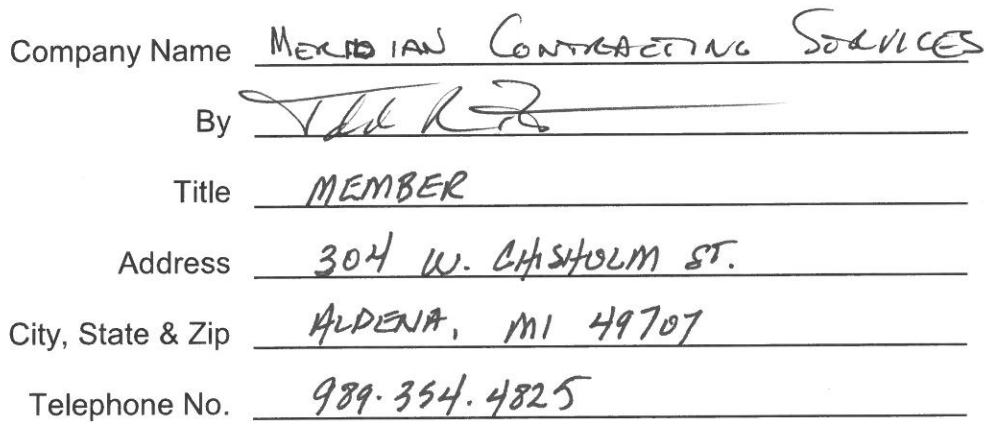 Company Name MERIDIAN CONTRACTING SERVICES
By
Title MEMBER
Address 304 W. CHISHOLM ST.
City, State & Zip ALPENA, MI 49707
Telephone No. 989.354.4825